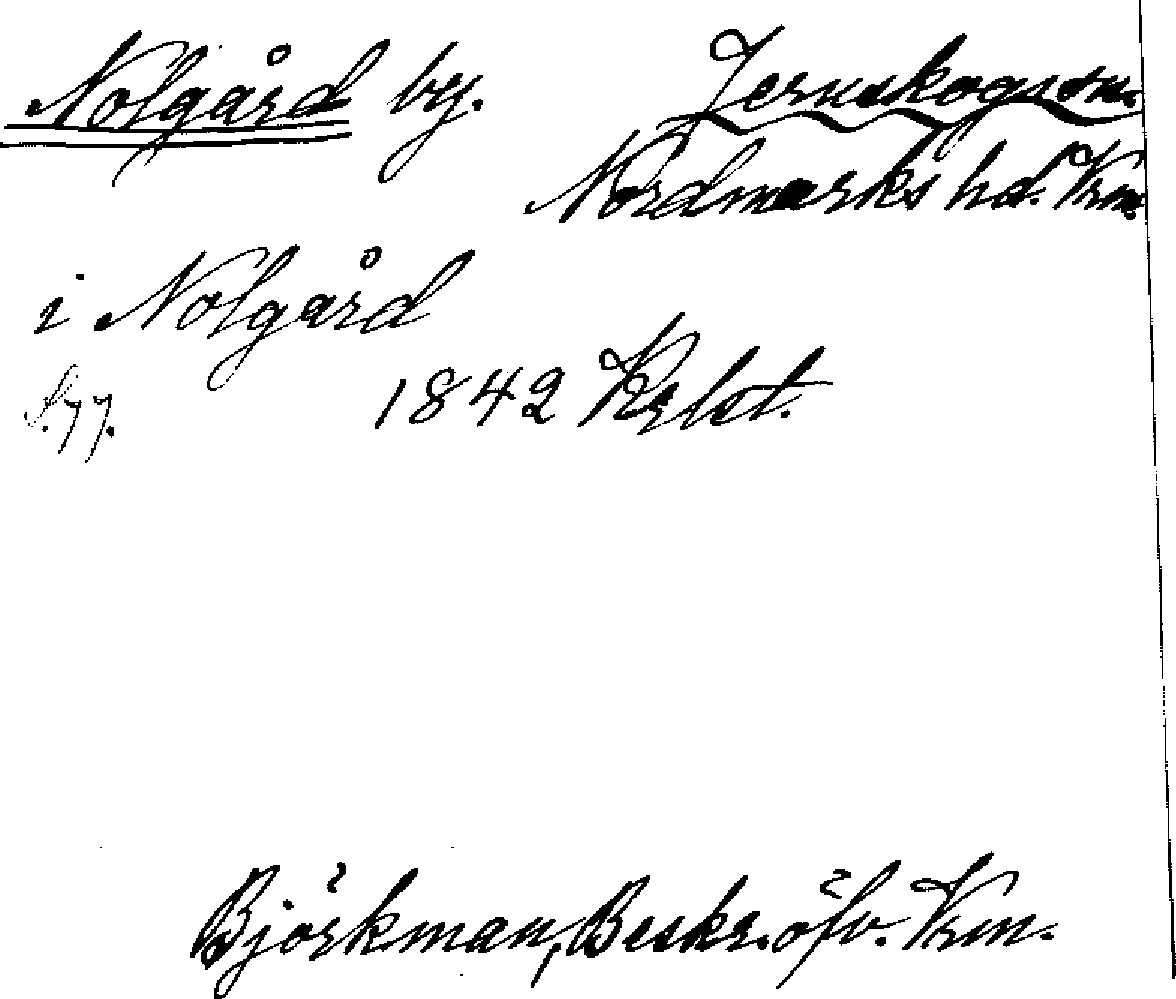 Nolgård by. Jernskogs sn.
Nordmarks hd. Vrm.
i Nolgård
S. 77. 1842 Krlst.
Björkman, Beskr. öfv. Vrm.